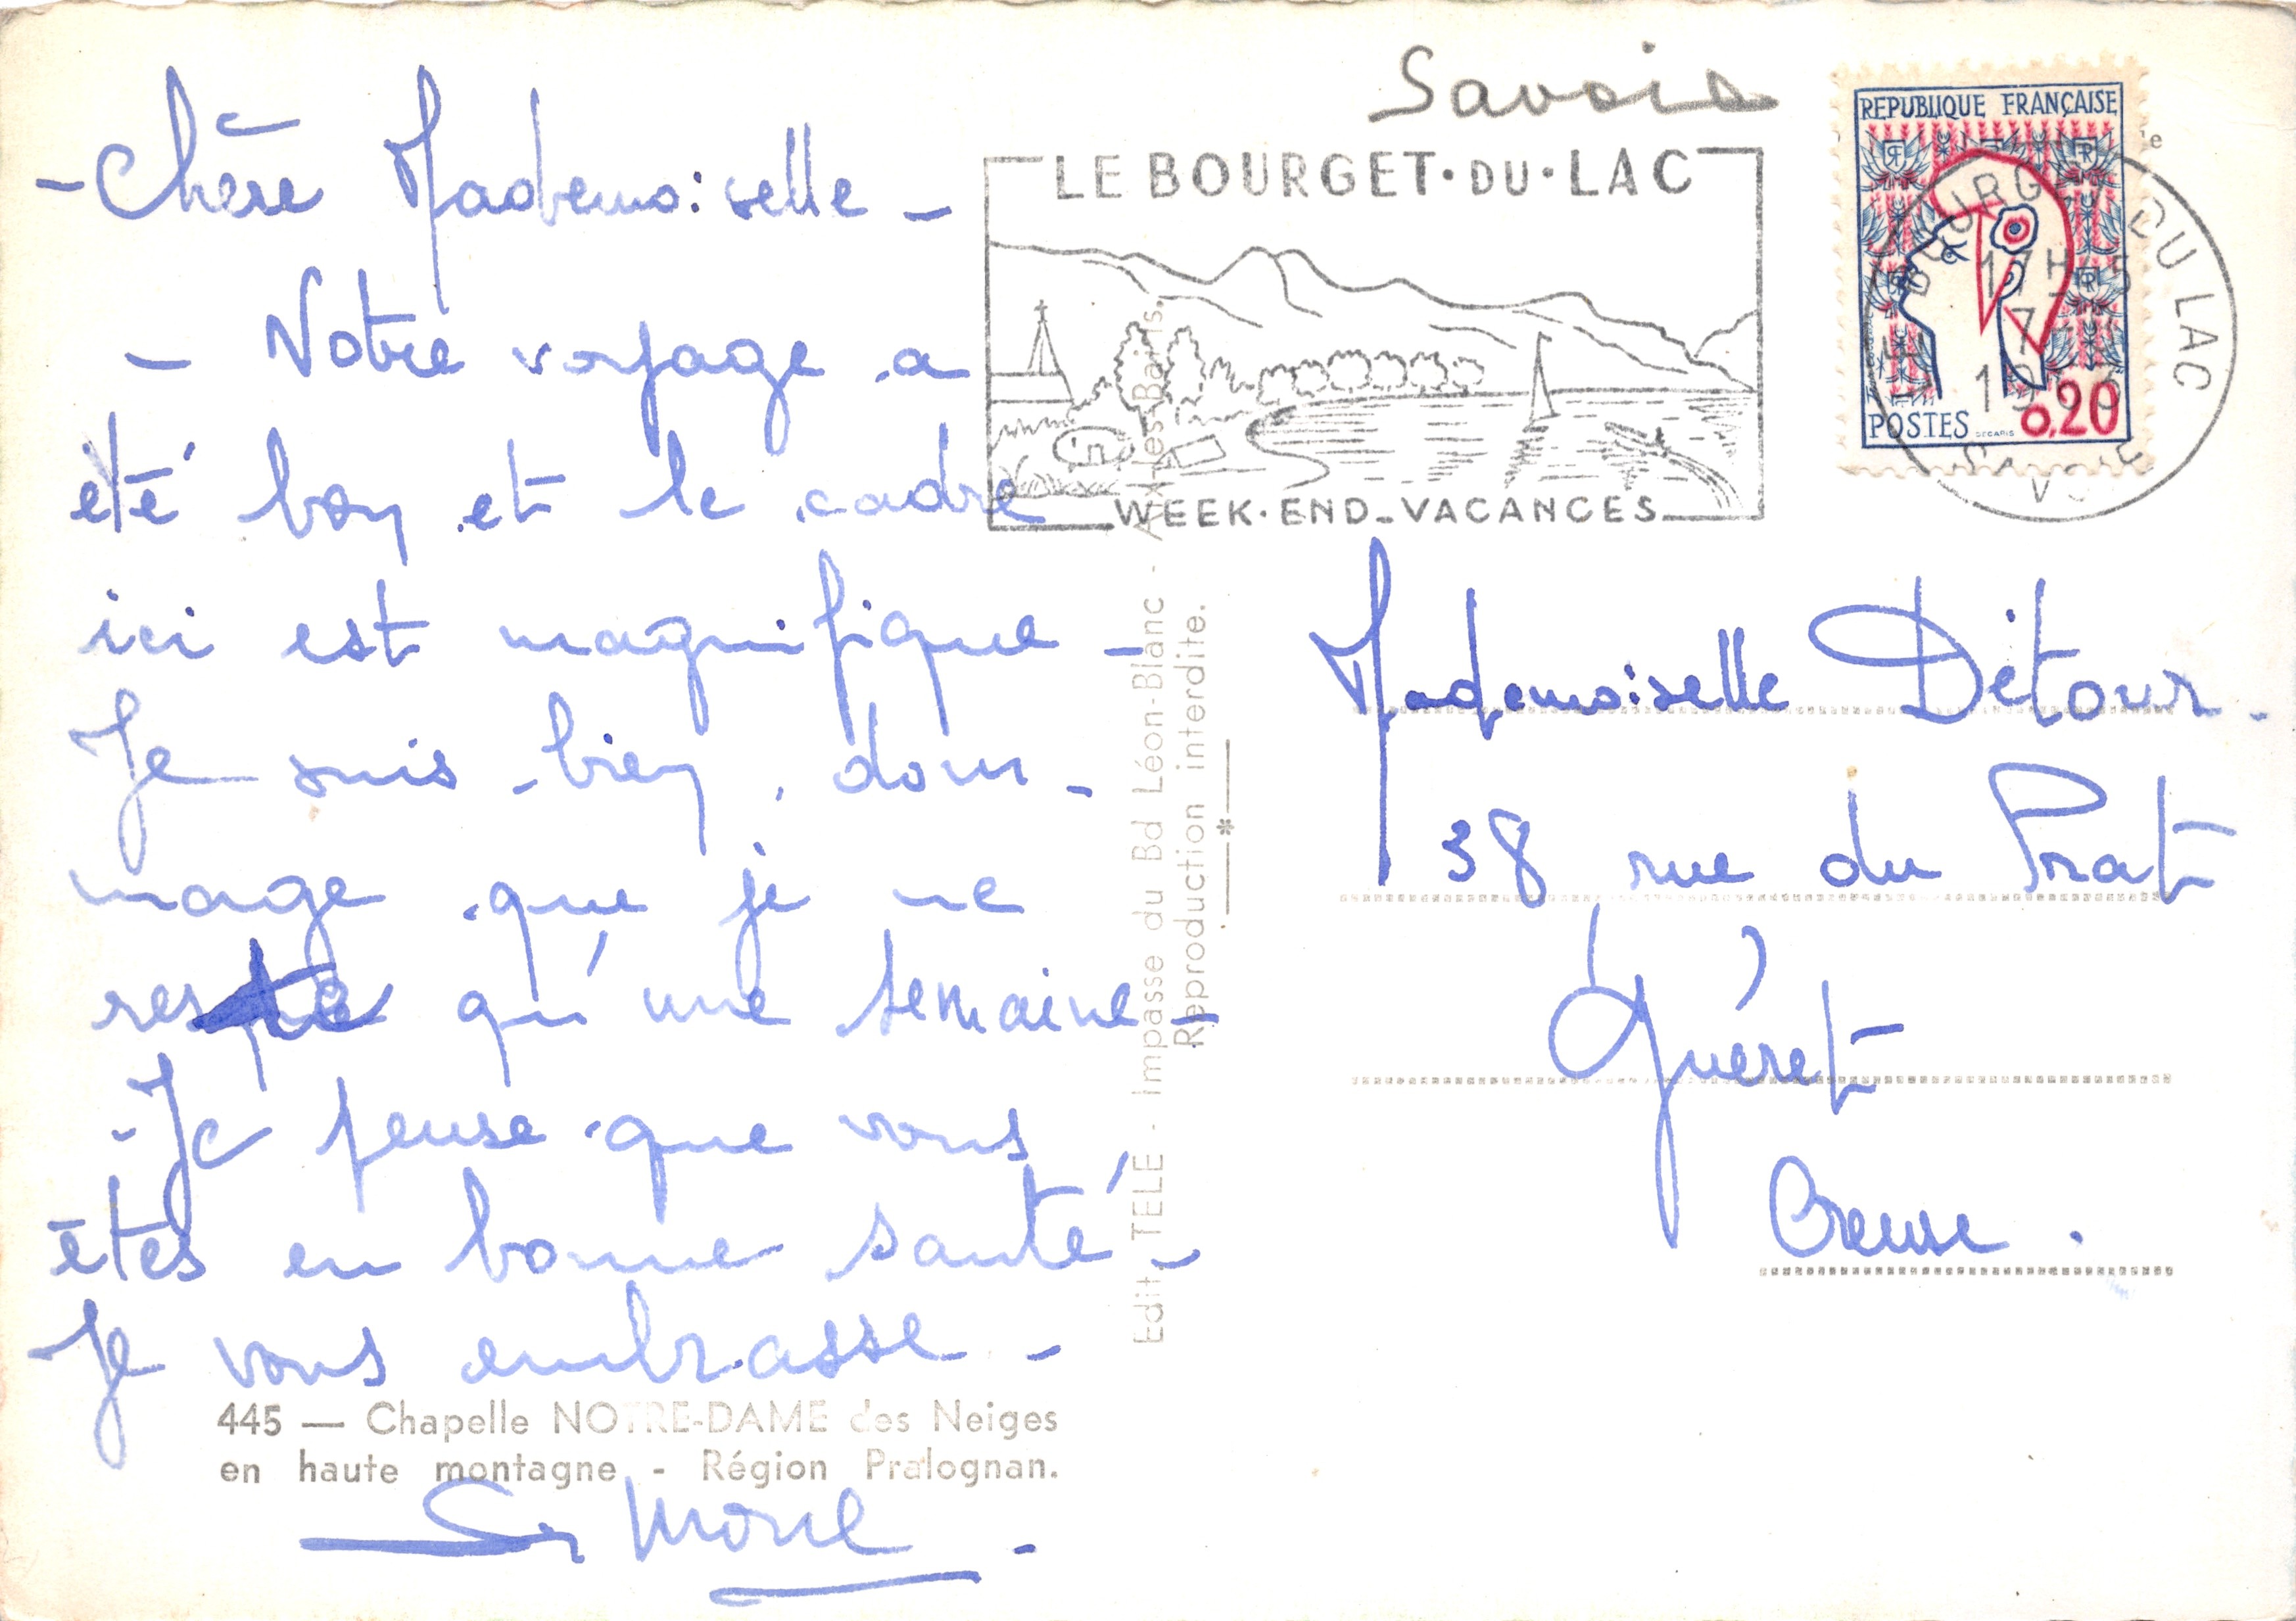 - Chère Mademoiselle -
- Notre voyage a
été bon et le cadre
ici est magnifique -
Je suis bien, dom-
mage que je ne
reste qu'une semaine -
- Je pense que vous
êtes en bonne santé -
Je vous embrasse -
445 — Chapelle NOTRE-DAME des Neiges
en haute montagne - Région Pralognan.
Simone -
Edit. TELE - Impasse du Bd Léon-Blanc - Aix-les-Bains.
Reproduction interdite.
Savoie
LE BOURGET·DU·LAC
WEEK·END-VACANCES
REPUBLIQUE FRANÇAISE
POSTES
DECARIS
0,20
BOURGET DU LAC
17H
SAVOIE
Mademoiselle Détour -
38 rue du Prat
Guéret
Creuse .